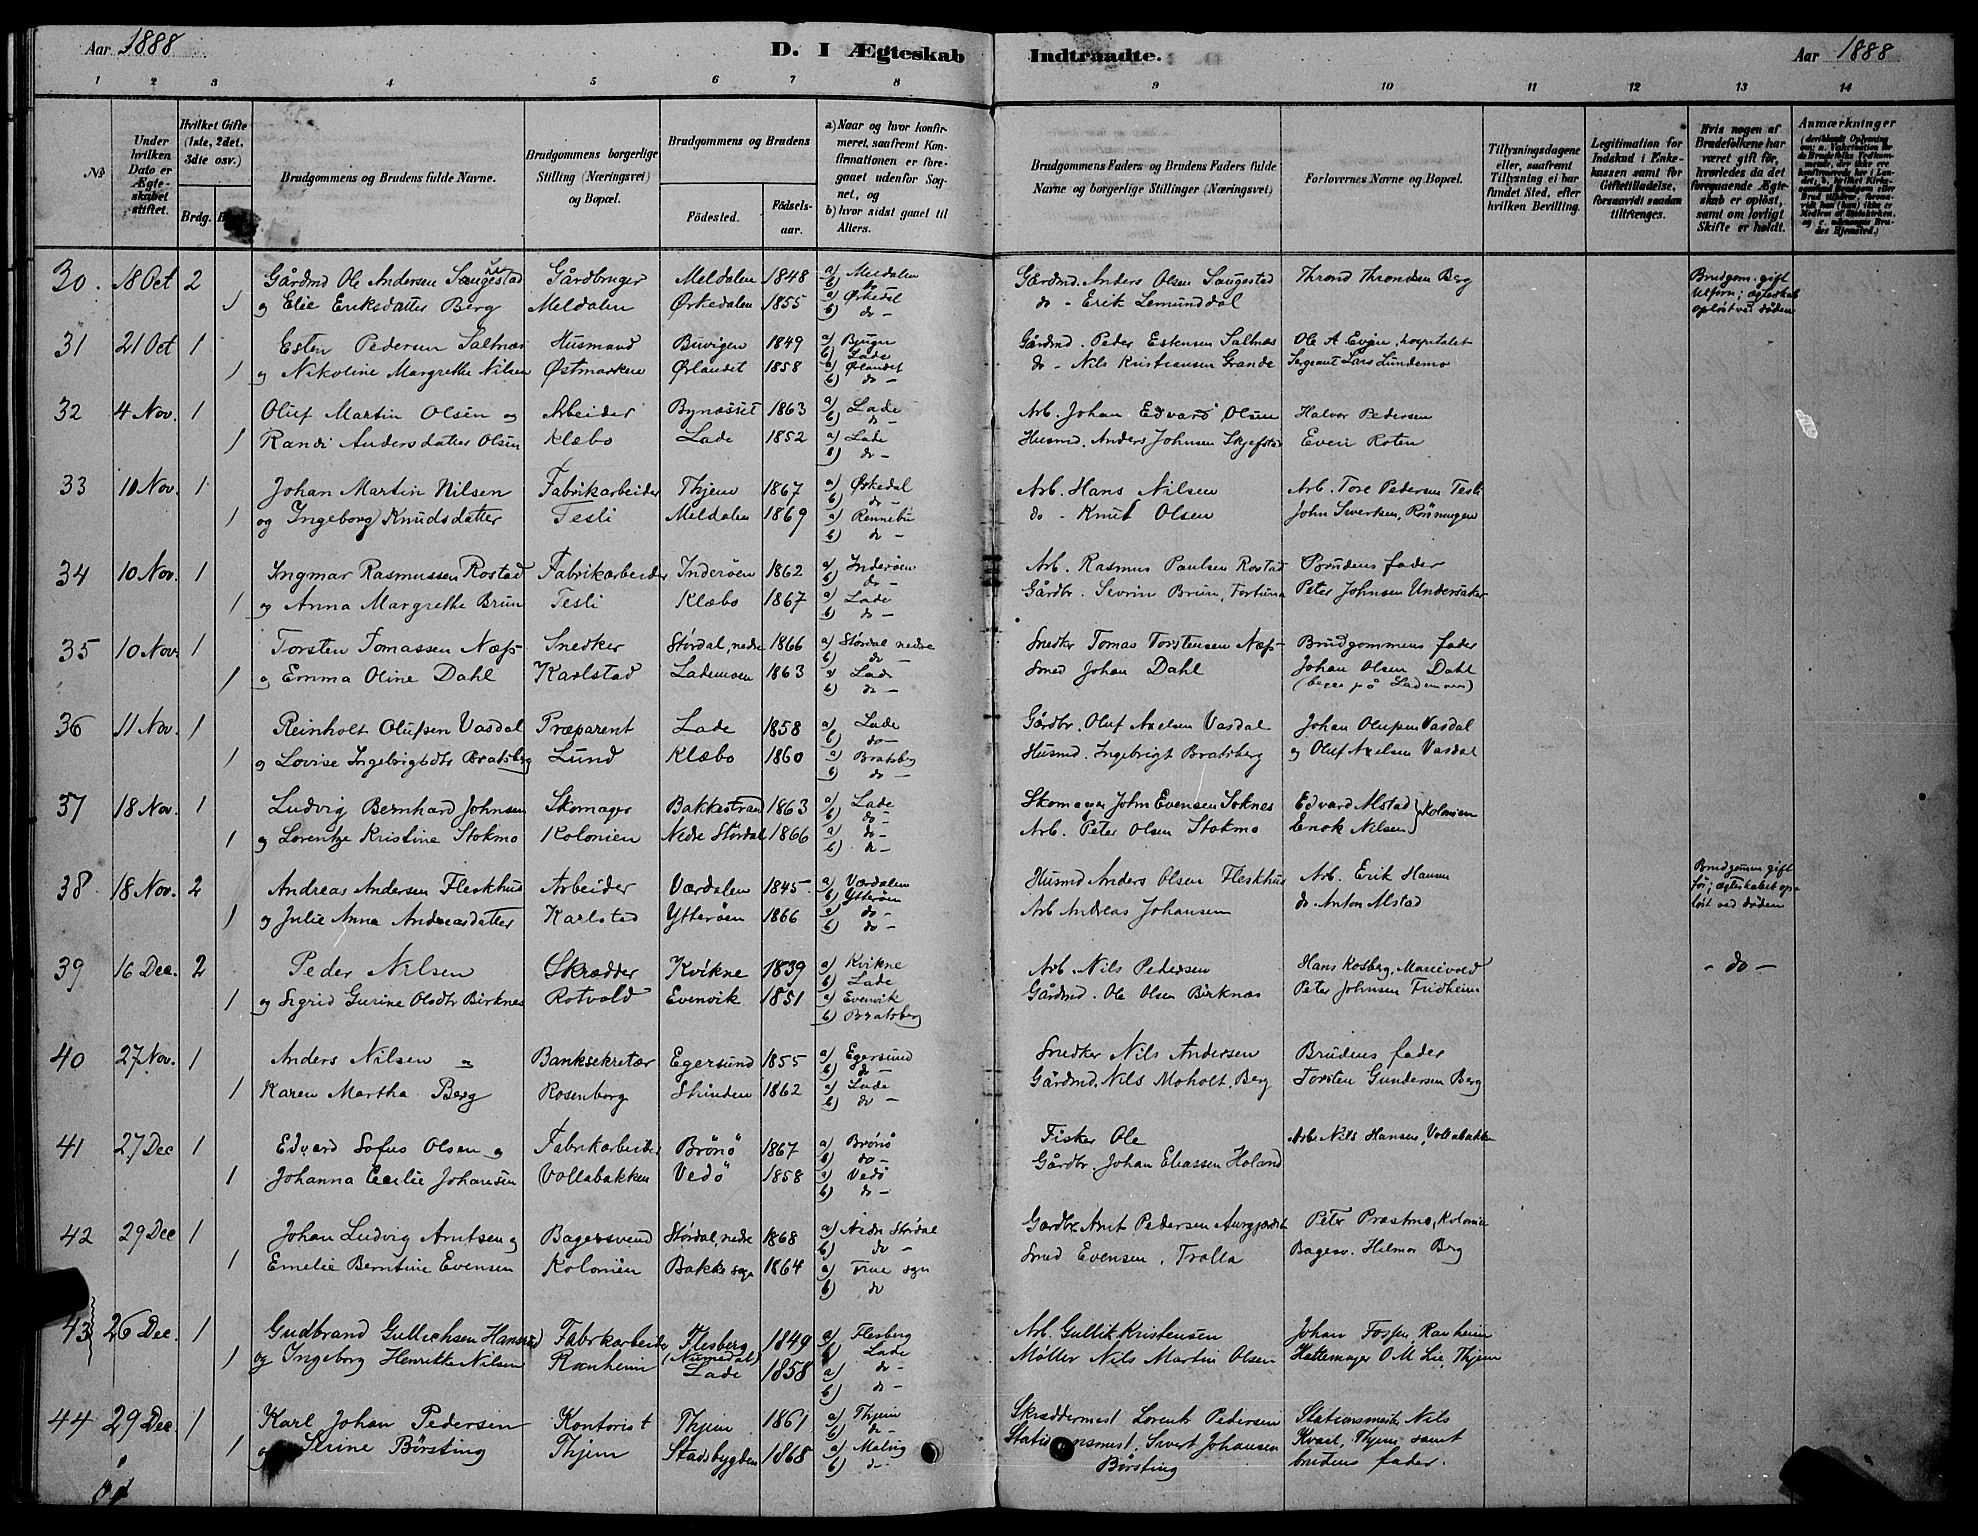 Aar 1888 D. I Ægteskab Indtraadte. Aar 1888
1 2 3 4 5 6 7 8 9 10 11 12 13 14
No
Under hvilken Dato er Ægteskabet stiftet.
Hvilket Gifte (1ste, 2det, 3die osv.)
Brdg.
Brudgommens og Brudens fulde Navne.
Brudgommens borgerlige Stilling (Næringsvei) og Bopæl.
Brudgommens og Brudens
Födested.
Födsels-aar.
a) Naar og hvor konfirmeret, saafremt Konfirmationen er foregaaet udenfor Sognet, og
b) hvor sidst gaaet til Alters.
Brudgommens Faders og Brudens Faders fulde Navne og borgerlige Stillinger (Næringsvei)
Forlovernes Navne og Bopæl.
Tillysningsdagene eller, saafremt Tillysning ei har fundet Sted, efter hvilken Bevilling.
Legitimation for Indskud i Enkekassen samt for Giftetilladelse, forsaavidt saadan tiltrenges.
Hvis nogen af Brudefolkene har været gift før, hvorledes da det foregaaende Ægteskab er opløst, samt om lovligt Skifte er holdt.
Anmærkninger
30. 18 Oct 2 Gårdmd Ole Andersen Saugestad Gårdbruger Meldalen 1848 a) Meldalen b) do Gårdmd. Anders Olsen Saugestad Thrond Throndsen Berg Brudgom. gift
1 og Elie Eriksdatter Berg Meldalen Ørkedalen 1855 a) Ørkedal b) do - do - Erik Lemunddal opløst ved døden
31 21 Oct 1 Esten Pedersen Saltnæs Husmand Buvigen 1849 a) Bjugn b) Lade Gårdmd. Peder Estensen Saltnæs Ole A Evjen, hospitalet
1 og Nikoline Margrethe Nilsen Østmarken Ørlandet 1858 a) Ørlandet b) do - do - Nils Kristiansen Grande Sergeant Lars Lundemo
32 4 Nov. 1 Oluf Martin Olsen og Arbeider Bynæsset 1863 a) Lade b) do - Arb. Johan Edvard Olsen Halvor Pedersen
1 Randi Andersdatter Olsen Klæbo Lade 1852 a) Lade b) do - Husmd. Anders Johnsen Skjefstad Even Roten
33 10 Nov. 1 Johan Martin Nilsen Fabrikarbeider Thjem 1867 a) Ørkedal b) do Arb. Hans Nilsen Arb. Tore Pedersen Tesli
1 og Ingeborg Knudsdatter Tesli Meldalen 1869 a) Rennebu b) do - do - Knut Olsen John Sivertsen, Rønningen
34 10 Nov. 1 Ingmar Rasmussen Rostad Fabrikarbeider Inderøen 1862 a) Inderøen b) do - Arb. Rasmus Paulsen Rostad Brudens fader
1 og Anna Margrethe Brun Tesli Klæbo 1867 a) Lade b) do - Gårdbr. Sevrin Brun, Fortuna Peter Johnsen Undersaker
35 10 Nov. 1 Torsten Tomassen Næss Snedker Størdal, nedre 1866 a) Størdal nedre b) do - Snedker Tomas Torstensen Næss Brudgommens fader
1 og Emma Oline Dahl Karlstad Lademoen 1863 a) Lade b) do - Smed Johan Dahl Johan Olsen Dahl
(begge på Lademoen)
36 11 Nov. 1 Reinholt Olufsen Vasdal Præparent Lade 1858 a) Lade b) do - Gårdbr. Oluf Axelsen Vasdal Johan Olufsen Vasdal
1 og Lovise Ingebrigtsdtr Bratsberg Lund Klæbo 1860 a) Bratsberg b) do - Husmd. Ingebrigt Bratsberg og Oluf Axelsen Vasdal
37 18 Nov. 1 Ludvig Bernhard Johnsen Skomager Bakkestrand 1863 a) Lade b) do - Skomager John Evensen Soknes Edvard Alstad } Kolonien
1 og Lorentze Kristine Stokmo Kolonien Nedre Størdal 1866 a) do - b) do - Arb. Peter Olsen Stokmo Enok Nilsen
38 18 Nov. 2 Andreas Andersen Fleskhus Arbeider Værdalen 1845 a) Værdalen b) Ytterøen Husmd Anders Olsen Fleskhus Arb. Erik Hansen Brudgommen gift før; ægteskabet op-
1 og Julie Anna Andreasdatter Karlstad Ytterøen 1866 a) do - b) do - Arb Andreas Johansen do Anton Alstad løst ved døden
39 16 Dec. 2 Peder Nilsen Skrædder Kvikne 1839 a) Kvikne b) Lade Arb. Nils Pedersen Hans Rosberg, Marievold - do -
1 og Sigrid Gurine Olsdtr Birknes Rotvold Evenvik 1851 a) Evenvik b) Bratsberg Gårdmd. Ole Olsen Birknæs Peter Johnsen Fridheim
40 27 Nov. 1 Anders Nilsen og Banksekretær Egersund 1855 a) Egersund b) do - Snedker Nils Andersen Brudens fader
1 Karen Martha Berg Rosenborg Strinden 1862 a) Lade b) do - Gårdmd. Nils Moholt, Berg Torsten Gundersen Berg
41 27 Dec 1 Edvard Sofus Olsen og Fabrikarbeider Brønø 1867 a) Brønø b) do - Fisker Ole Arb. Nils Hansen, Vollabakken
1 Johanna Cecilie Johansen Vollabakken Vedö 1858 a) Vedö b) do - Gårdbr. Johan Eliassen Holand
42 29 Dec 1 Johan Ludvig Arntsen og Bagersvend Størdal, nedre 1868 a) Nedre Størdal b) do - Gårdbr Arnt Pedersen Peter Præstmo, Kolonien
1 Emelie Berntine Evensen Kolonien Bakke sogn 1864 a) Frue sogn b) do Smed Evensen, Trolla Bagersv. Hilmar Berg
43 26 Dec. 1 Gudbrand Gullichsen Hansrud Fabrikarbeider Flesberg (Numedal) 1849 a) Flesberg b) Lade Arb. Gullik Kristensen Johan Fossen, Ranheim
1 og Ingeborg Henrikke Nilsen Ranheim Lade 1858 a) do - b) do - Møller Nils Martin Olsen Hattemager O M Lie, Thjem
44 29 Dec. 1 Karl Johan Pedersen Kontorist Thjem 1861 a) Thjem b) do - Skræddermest Lorents Pedersen Stationsmester Nils
1 og Serine Børsting Thjem Stadsbygden 1868 a) Malvig b) do Stationsmest. Sivert Johansen Børsting Kvaal, Thjem samt brudens fader.